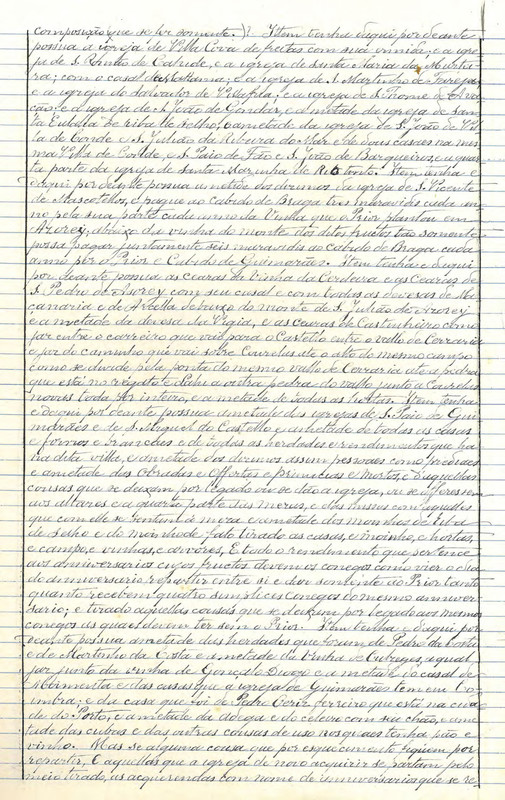 composição que se lêe somente.)? Item tenha daqui por deante
possua a igreja de Villa Cova de freitas com sua ermida, e a igre
ja de S. Romão de Cahude, e a igreja de Santa Maria da
com o casal e a igreja de S. Martinho de
e a igreja do Salvador de e a igreja de S. Thomé de
e a igreja de S. João de Gondar, e a metade da igreja de San
ta Eulalia de riba de Selho, e a metade da igreja de S. João de Vil
la de Conde e S. Julião da Ribeira do Mar e de dous casaes na mes
ma Villa de Conde, e S. Paio de Fão e S. João de Barqueiros, e a quar
ta parte da igreja de Santa Marinha de Item tenha e
daqui por deante possua a metade dos dizimos da igreja de S. Vicente
de Mascotellos, e pague ao cabido de Braga tres maravidis cada an
no pela sua parte cada anno da Vinha que o Prior plantou em
Azorey, abaixo da vinha do monte dos ditos fructos tão somente
possa pagar juntamente seis maravidis ao cabido de Braga cada
anno per o Prior e Cabido de Guimarães. Item tenha e daqui
por deante possua as cearas da Vinha da Cordeira e as Cearas de
S. Pedro de Azorey com seu casal e com todas as devesas de Ma
çanaria e de debaixo do monte de S. Julião de Azorey
e a metade da devesa da Vigia, e as cearas de Castanheiro como
jaz entre o carreiro que vai para o Castello entre o vallo de Corraria
e por do caminho que vai sobre até o alto do mesmo campo
como se divide pela ponta do mesmo vallo de Corraria até a pedra
que está no regato e dahi a outra pedra do vallo junto a
novas toda por inteiro, e a metade de todas as hortas. Item tenha
e daqui por deante possua a metade das igrejas de S. Paio de Gui
marães e de S. Miguel do Castello e ametade de todas as casas
e fornos e e de todas as herdades e rendimentos que ha
na dita villa, e ametade dos dizimos assim pessoaes como prediaes
e ametade das Obradas e Offertas e primicias e mortos, e daquellas
cousas que se deixam por legado ou se dão a igreja, ou se offerecem
aos altares e a quarta parte das meças, e das missas com aquelles
que com elle se sentam á meza e ametade dos moinhos de riba
de Selho e do moinho de falo tirado as casas, e moinho, e hortas,
e campo, e vinhas, e arvores. E todo o rendimento que pertence
aos anniversarios cujos fructos devem os conegos como vier o dia
do anniversario repartir entre si e dar somente ao Prior tanto
quanto recebem quatro simplices conegos do mesmo anniver
sario; e tirado aquellas cousas que se deixem por legado aos mesmos
conegos as quaes devem ter sem o Prior. Item tenha e daqui por
deante possua ametade das herdades que foram de Pedro da Costa
e de Martinho da Costa e ametade da vinha de a qual
jaz junto da vinha de Gonçalo e a metade do casal de
Mormenta e das casas que a igreja de Guimarães tem em Co
imbra; e da casa que foi de Pedro ferreiro que está na cida
de do Porto, e ametade da adega e do celeiro com seu chão, e ame
tade das cubas e das outras cousas de uso nos quaes tenha pão e
vinho. Mas se alguma cousa que por esquecimento fiquem por
repartir, e aquellas que a igreja de novo acquirir se partam pelo
meio tirado, as acquerendas com nome de anniversarios que se re